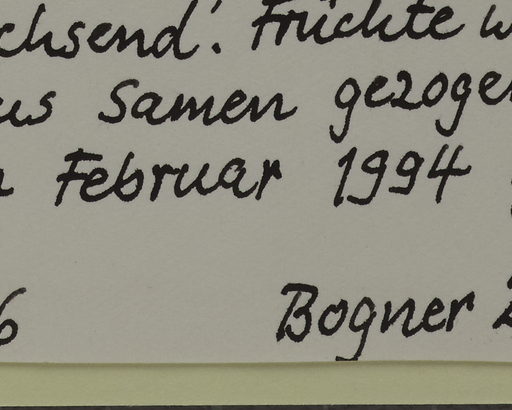 chsend'. Früchte w
us Samen gezoge
Februar 1994
6 Bogner